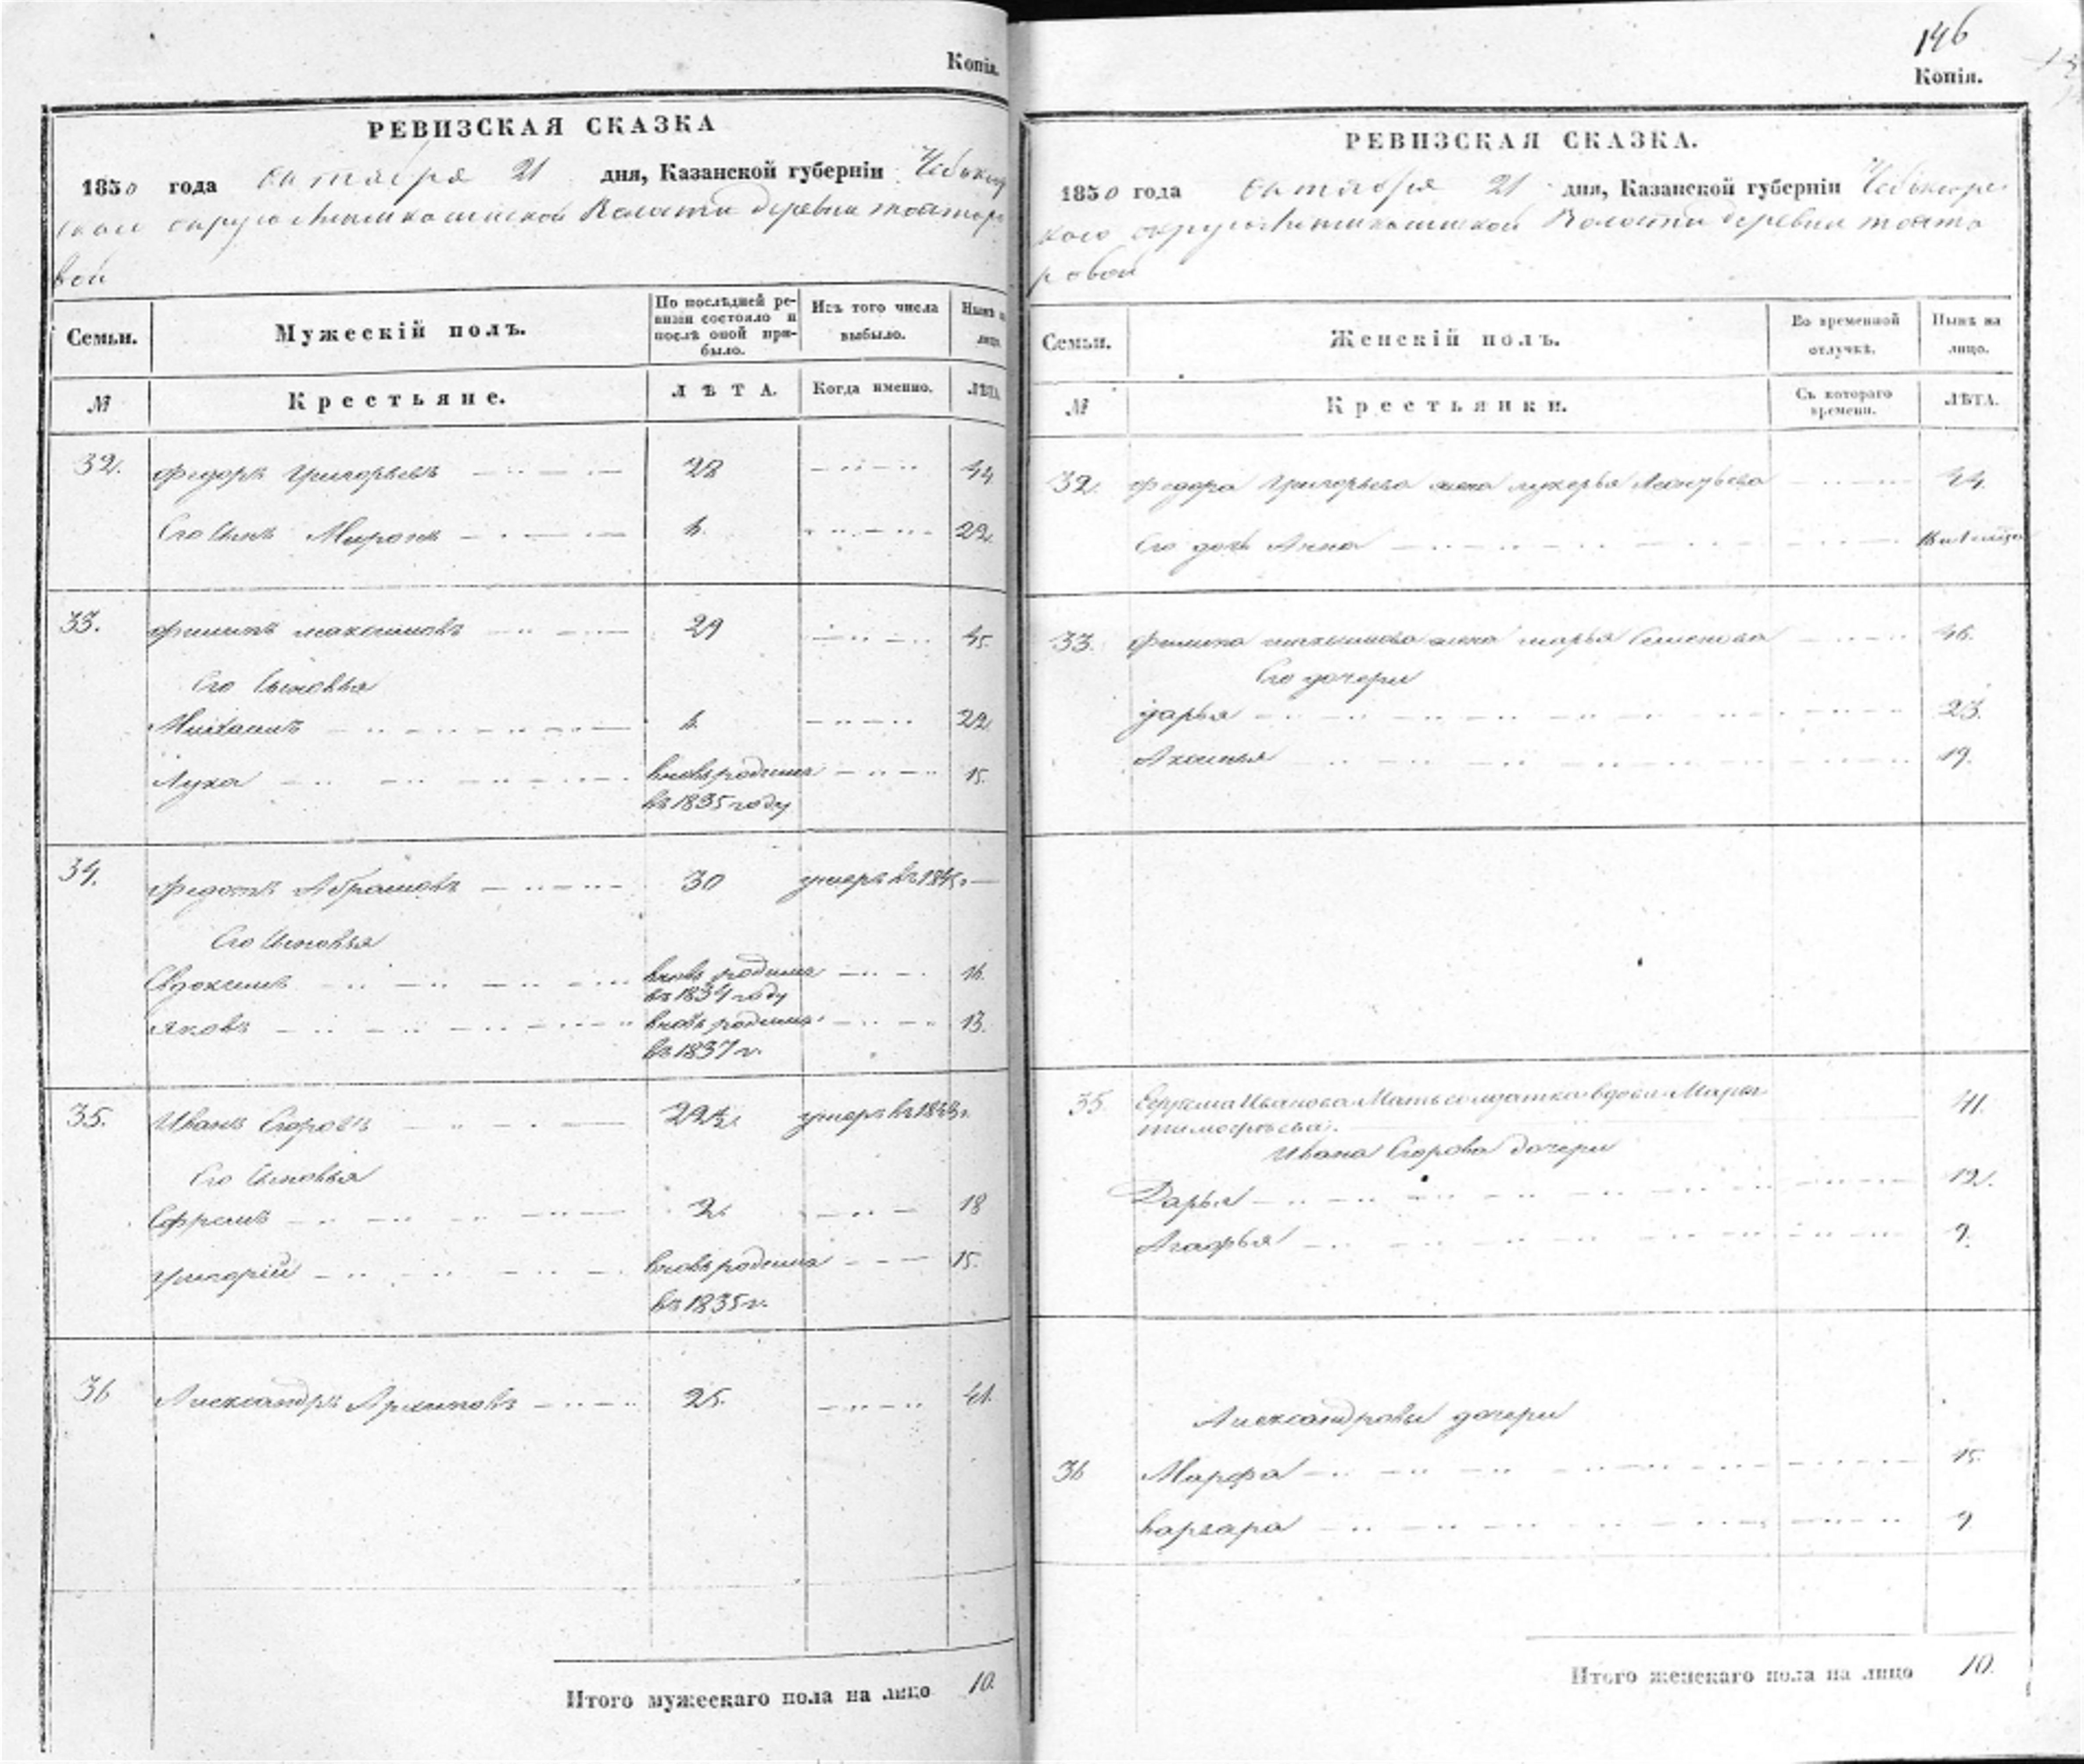 Копія.
РЕВИЗСКАЯ СКАЗКА
1850 года октября 21 дня, Казанской губерніи Чебоксар
скаго округа Волости деревни тоятор
вой
Семьи. Мужескій полъ. По послѣдней ре- визіи состояло и послѣ оной при- было. Изъ того числа выбыло. Нынѣ на лицо.
№ Крестьяне. ЛѢТА. Когда именно. ЛѢТА.
32. Федоръ Григорьевъ 28 44
Его Сынъ Миронъ 6. 22
33. Филипъ Максимовъ 29 45.
Его Сыновья
Михаилъ 6. 22
Лука вновь рожденъ 15.
въ 1835 году
34. Федотъ Абрамовъ 30 умеръ въ 1845г
Его Сыновья
Евдокимъ вновь рожденъ 16.
въ 1834 году
Яковъ вновь рожденъ 13.
въ 1837 г.
35. Иванъ Егоровъ умеръ въ
Его Сыновья
Ефремъ 2 18
Григорій вновь рожденъ 15.
въ 1835 г.
36 Александръ 25. 41.
Итого мужескаго пола на лицо 10.
146
Копія.
РЕВИЗСКАЯ СКАЗКА.
1850 года октября 21 дня, Казанской губерніи Чебоксарс
каго округа Волости деревни тоято
ровой
Семьи. Женскій полъ. Во временной отлучкѣ. Нынѣ на лицо.
№ Крестьянки. Съ котораго времени. ЛѢТА.
32. Федора Григорьева жена Лукерья Леонтьева 44.
Его дочь Анна
33. Филипа Максимова жена Марья Семенова 46.
Его дочери
Дарья 23.
Аксинья 19.
35. Ефрема Иванова Мать солдатка вдова Марья 41.
тимофѣева.
Ивана Егорова дочери
Дарья 12.
Агафья 9.
Александровы дочери
36 Марфа 15.
Варвара 9
Итого женскаго пола на лицо 10.